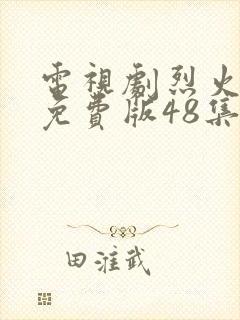 電視劇烈火
免費版48集
田淮武